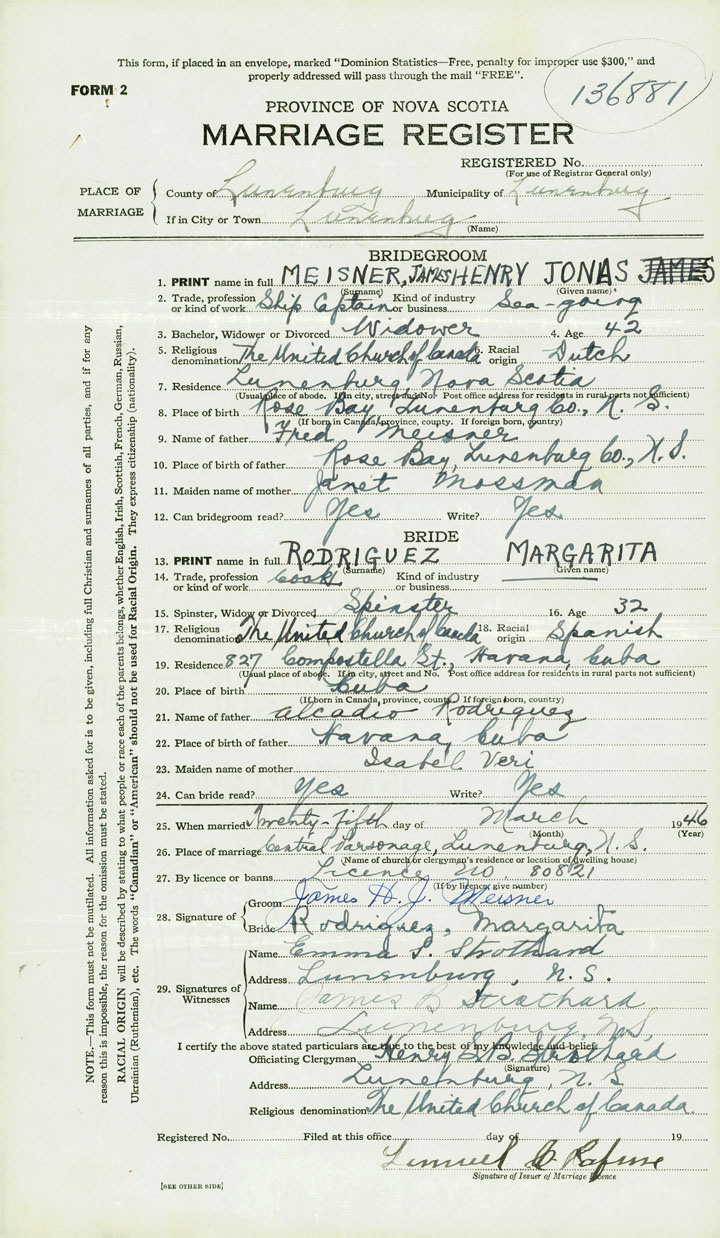 This form, if placed in an envelope, marked "Dominion Statistics—Free, penalty for improper use $300," and
properly addressed will pass through the mail "FREE".
FORM 2
136881
PROVINCE OF NOVA SCOTIA
MARRIAGE REGISTER
REGISTERED No.
(For use of Registrar General only)
PLACE OF MARRIAGE
County of Lunenburg Municipality of Lunenburg
If in City or Town Lunenburg
(Name)
BRIDEGROOM
1. PRINT name in full MEISNER, JAMES HENRY JONAS JAMES
(Surname) (Given name)
2. Trade, profession or kind of work Ship Captain Kind of industry or business Sea-going
3. Bachelor, Widower or Divorced Widower 4. Age 42
5. Religious denomination The United Church of Canada 6. Racial origin Dutch
7. Residence Lunenburg, Nova Scotia
(Usual place of abode. If in city, street and No. Post office address for residents in rural parts not sufficient)
8. Place of birth Rose Bay, Lunenburg Co., N. S.
(If born in Canada, province, county. If foreign born, country)
9. Name of father Fred Meisner
10. Place of birth of father Rose Bay, Lunenburg Co., N. S.
11. Maiden name of mother Janet Mossman
12. Can bridegroom read? Yes Write? Yes
BRIDE
13. PRINT name in full RODRIGUEZ MARGARITA
(Surname) (Given name)
14. Trade, profession or kind of work Cook Kind of industry or business
15. Spinster, Widow or Divorced Spinster 16. Age 32
17. Religious denomination The United Church of 18. Racial origin Spanish
19. Residence 827 Compostella St., Havana, Cuba
(Usual place of abode. If in city, street and No. Post office address for residents in rural parts not sufficient)
20. Place of birth Cuba
(If born in Canada, province, county. If foreign born, country)
21. Name of father Alcadio Rodriguez
22. Place of birth of father Havana, Cuba
23. Maiden name of mother Isabel Veri
24. Can bride read? Yes Write? Yes
25. When married Twenty-fifth day of March 1946
(Month) (Year)
26. Place of marriage Central Parsonage, Lunenburg, N. S.
(Name of church or clergyman's residence or location of dwelling house)
27. By licence or banns Licence No. 80821
(If by licence, give number)
28. Signature of
Groom James H. J. Meisner
Bride Rodriguez, Margarita
29. Signatures of Witnesses
Name Emma S. Strothard
Address Lunenburg, N. S.
Name James B Strothard
Address Lunenburg, N.S.
I certify the above stated particulars are true to the best of my knowledge and belief
Officiating Clergyman Henry Strothard
(Signature)
Address Lunenburg, N. S.
Religious denomination The United Church of Canada.
Registered No. Filed at this office day of 19
Lemuel C. Rafuse
Signature of Issuer of Marriage Licence
[SEE OTHER SIDE]
NOTE.—This form must not be mutilated. All information asked for is to be given, including full Christian and surnames of all parties, and if for any
reason this is impossible, the reason for the omission must be stated.
RACIAL ORIGIN will be described by stating to what people or race each of the parents belongs, whether English, Irish, Scottish, French, German, Russian,
Ukrainian (Ruthenian), etc. The words "Canadian" or "American" should not be used for Racial Origin. They express citizenship (nationality).